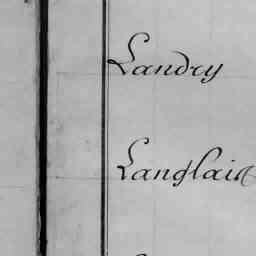 Landry
Langlais